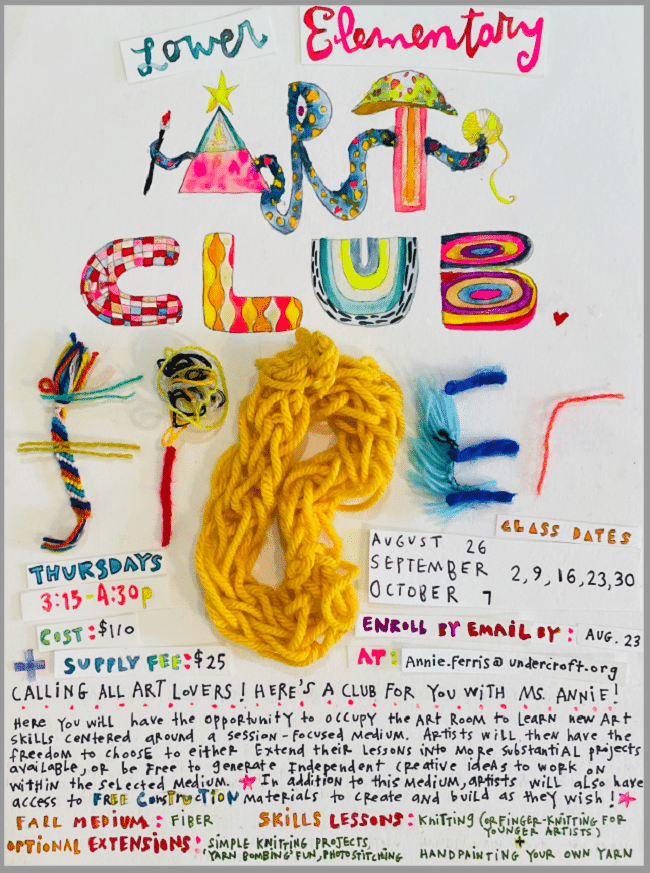 Lower Elementary
ART
CLUB
FIBER
THURSDAYS
3:15-4:30p
COST: $110
+ SUPPLY FEE: $25
CLASS DATES
AUGUST 26
SEPTEMBER 2, 9, 16, 23, 30
OCTOBER 7
ENROLL BY EMAIL BY: AUG. 23
AT: Annie.Ferris@undercroft.org
CALLING ALL ART LOVERS! HERE'S A CLUB FOR YOU WITH MS. ANNIE!
Here you will have the opportunity to occupy the Art Room to learn new Art
skills centered around a session-focused medium. Artists will then have the
freedom to choose to either Extend their lessons into more substantial projects
available, or be free to generate Independent creative ideas to work on
within the selected medium. In addition to this medium, artists will also have
access to FREE Construction materials to create and build as they wish!
FALL MEDIUM: FIBER SKILLS LESSONS: Knitting (or finger-knitting for
younger artists)
+
OPTIONAL EXTENSIONS: SIMPLE KNITTING PROJECTS,
YARN BOMBING FUN, PHOTOSTITCHING HANDPAINTING YOUR OWN YARN